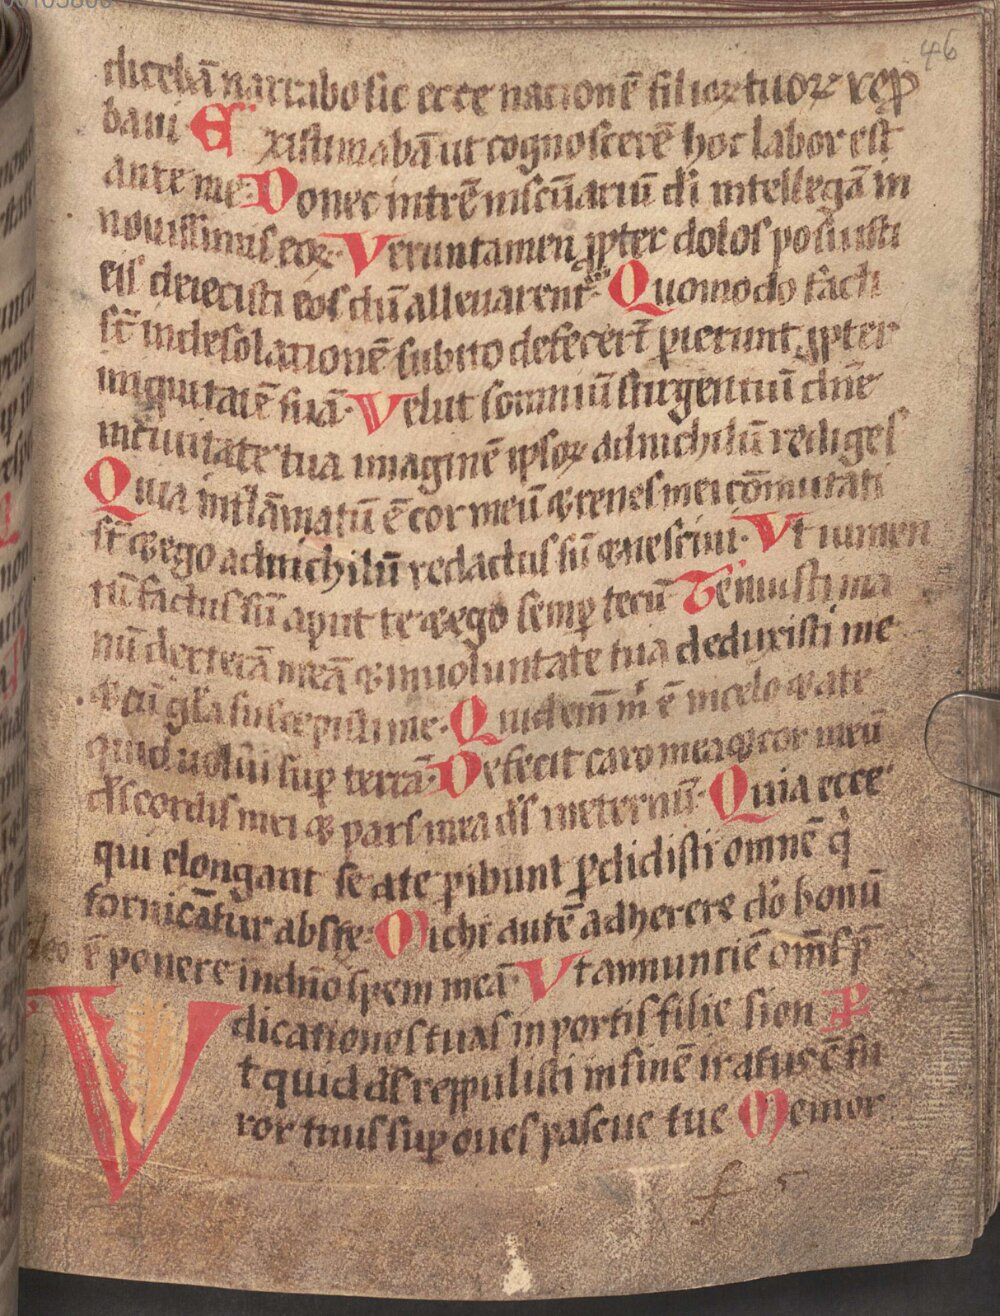 46
dicebā narrabo sic ecce nationē filioꝝ tuoꝝ rep̄ꝓ
baui Existimabā ut cognoscerē hoc labor est
ante me Donec intrē insc̄uariū di intellegā in
nouissimis eoꝝ Veruntamen ꝓpter dolos posuisti
eis deiecisti eos dū alleuarentᷣ Quomodo facti
st̄ indesolationē subito defecert̄ ꝑierunt ꝓpter
iniquitatē suā Velut somniū surgentiū dn̄e
inciuitate tua imaginē ipsoꝝ adnichilū rediges
Quia inflāmatū ē cor meū ⁊ renes mei cōmutati
st̄ ⁊ ego adnichilū redactus sū ⁊ nesciui Vt iumen
tū factus sū aput te ⁊ ego semꝑ tecū Tenuisti ma
nū dexterā meā ⁊ inuoluntate tua deduxisti me
⁊ cū gl̄a suscepisti me Quid eni m̄ ē incelo ⁊ ate
quid uolui suꝑ terrā Defecit caro mea ⁊ cor meū
ds̄ cordis mei ⁊ pars mea ds̄ ineternū Quia ecce
qui elongant se ate ꝑibunt ꝑdidisti omnē q̇
fornicātur abste Michi autē adherere dō bonū
ē ponere indn̄o spem meā Vt annuntiē om̄s p̄
dicationes tuas inportis filie sion P̄
Vt quid ds̄ reppulisti infinē iratus ē fu
ror tuus suꝑ oues pascue tue Memor